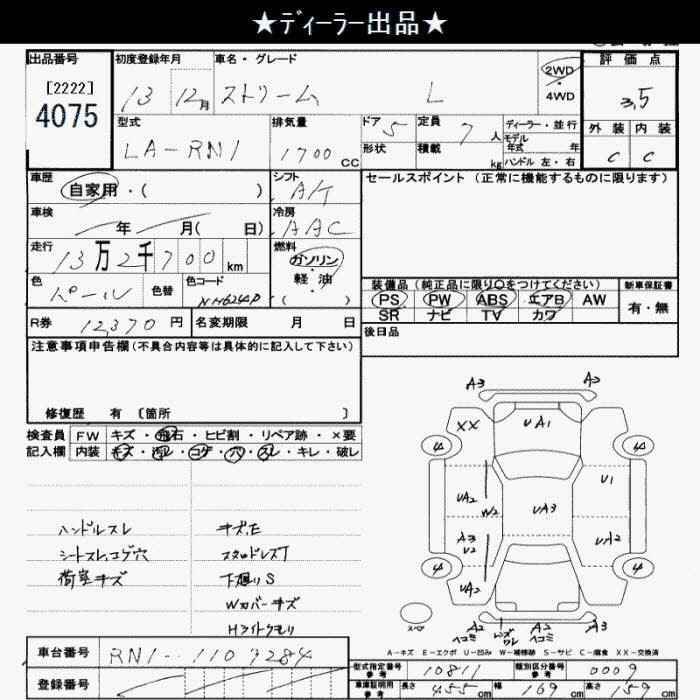 ★ディーラー出品★
出品番号 初度登録年月 車名・グレード 評価点
[2222]
4075
13 12月 ストリーム L 2WD・4WD 3,5
型式 排気量 ドア 5 定員 7人 ディーラー・並行 外装 内装
LA-RN1 1700cc 形状 積載 kg モデル年式 年 C C
ハンドル 左・右
車歴 シフト セールスポイント (正常に機能するものに限ります)
自家用・( ) A/T
車検 年 月( 日) 冷房 AAC
走行 13万2千700km 燃料 ガソリン
軽・油
( )
色 パール 色替 色コード NH624P
装備品(純正品に限り〇をつけてください) 新車保証書
PS PW ABS エアB AW 有・無
SR ナビ TV カワ
R券 12,370円 名変期限 月 日 後日品
注意事項申告欄(不具合内容等は具体的に記入して下さい)
修復歴 有 [箇所 ]
検査員 FW キズ・飛石・ヒビ割・リペア跡・×要
記入欄 内装 キズ・汚レ・コゲ・穴・スレ・キレ・破レ
A3 A2
XX UA1
4 4
U1
UA2 W2 UA3
A3 U2 UA2
4 4
UA2
スペア A2 ヘコミ レンズワレ A2 ヘコミ A3
ハンドルスレ キズ,E
シートスレ,コゲ穴 スタッドレスT
荷室キズ 下廻りS
Wカバーキズ
Hライトクモリ
A-キズ E-エクボ U-凹み W-補修跡 S-サビ C-腐食 XX-交換済
車台番号 RN1-1107284
登録番号
型式指定番号 参考 10811 類別区分番号 参考 0009
車庫証明用 参考 長さ 455cm 幅 169cm 高さ 159cm